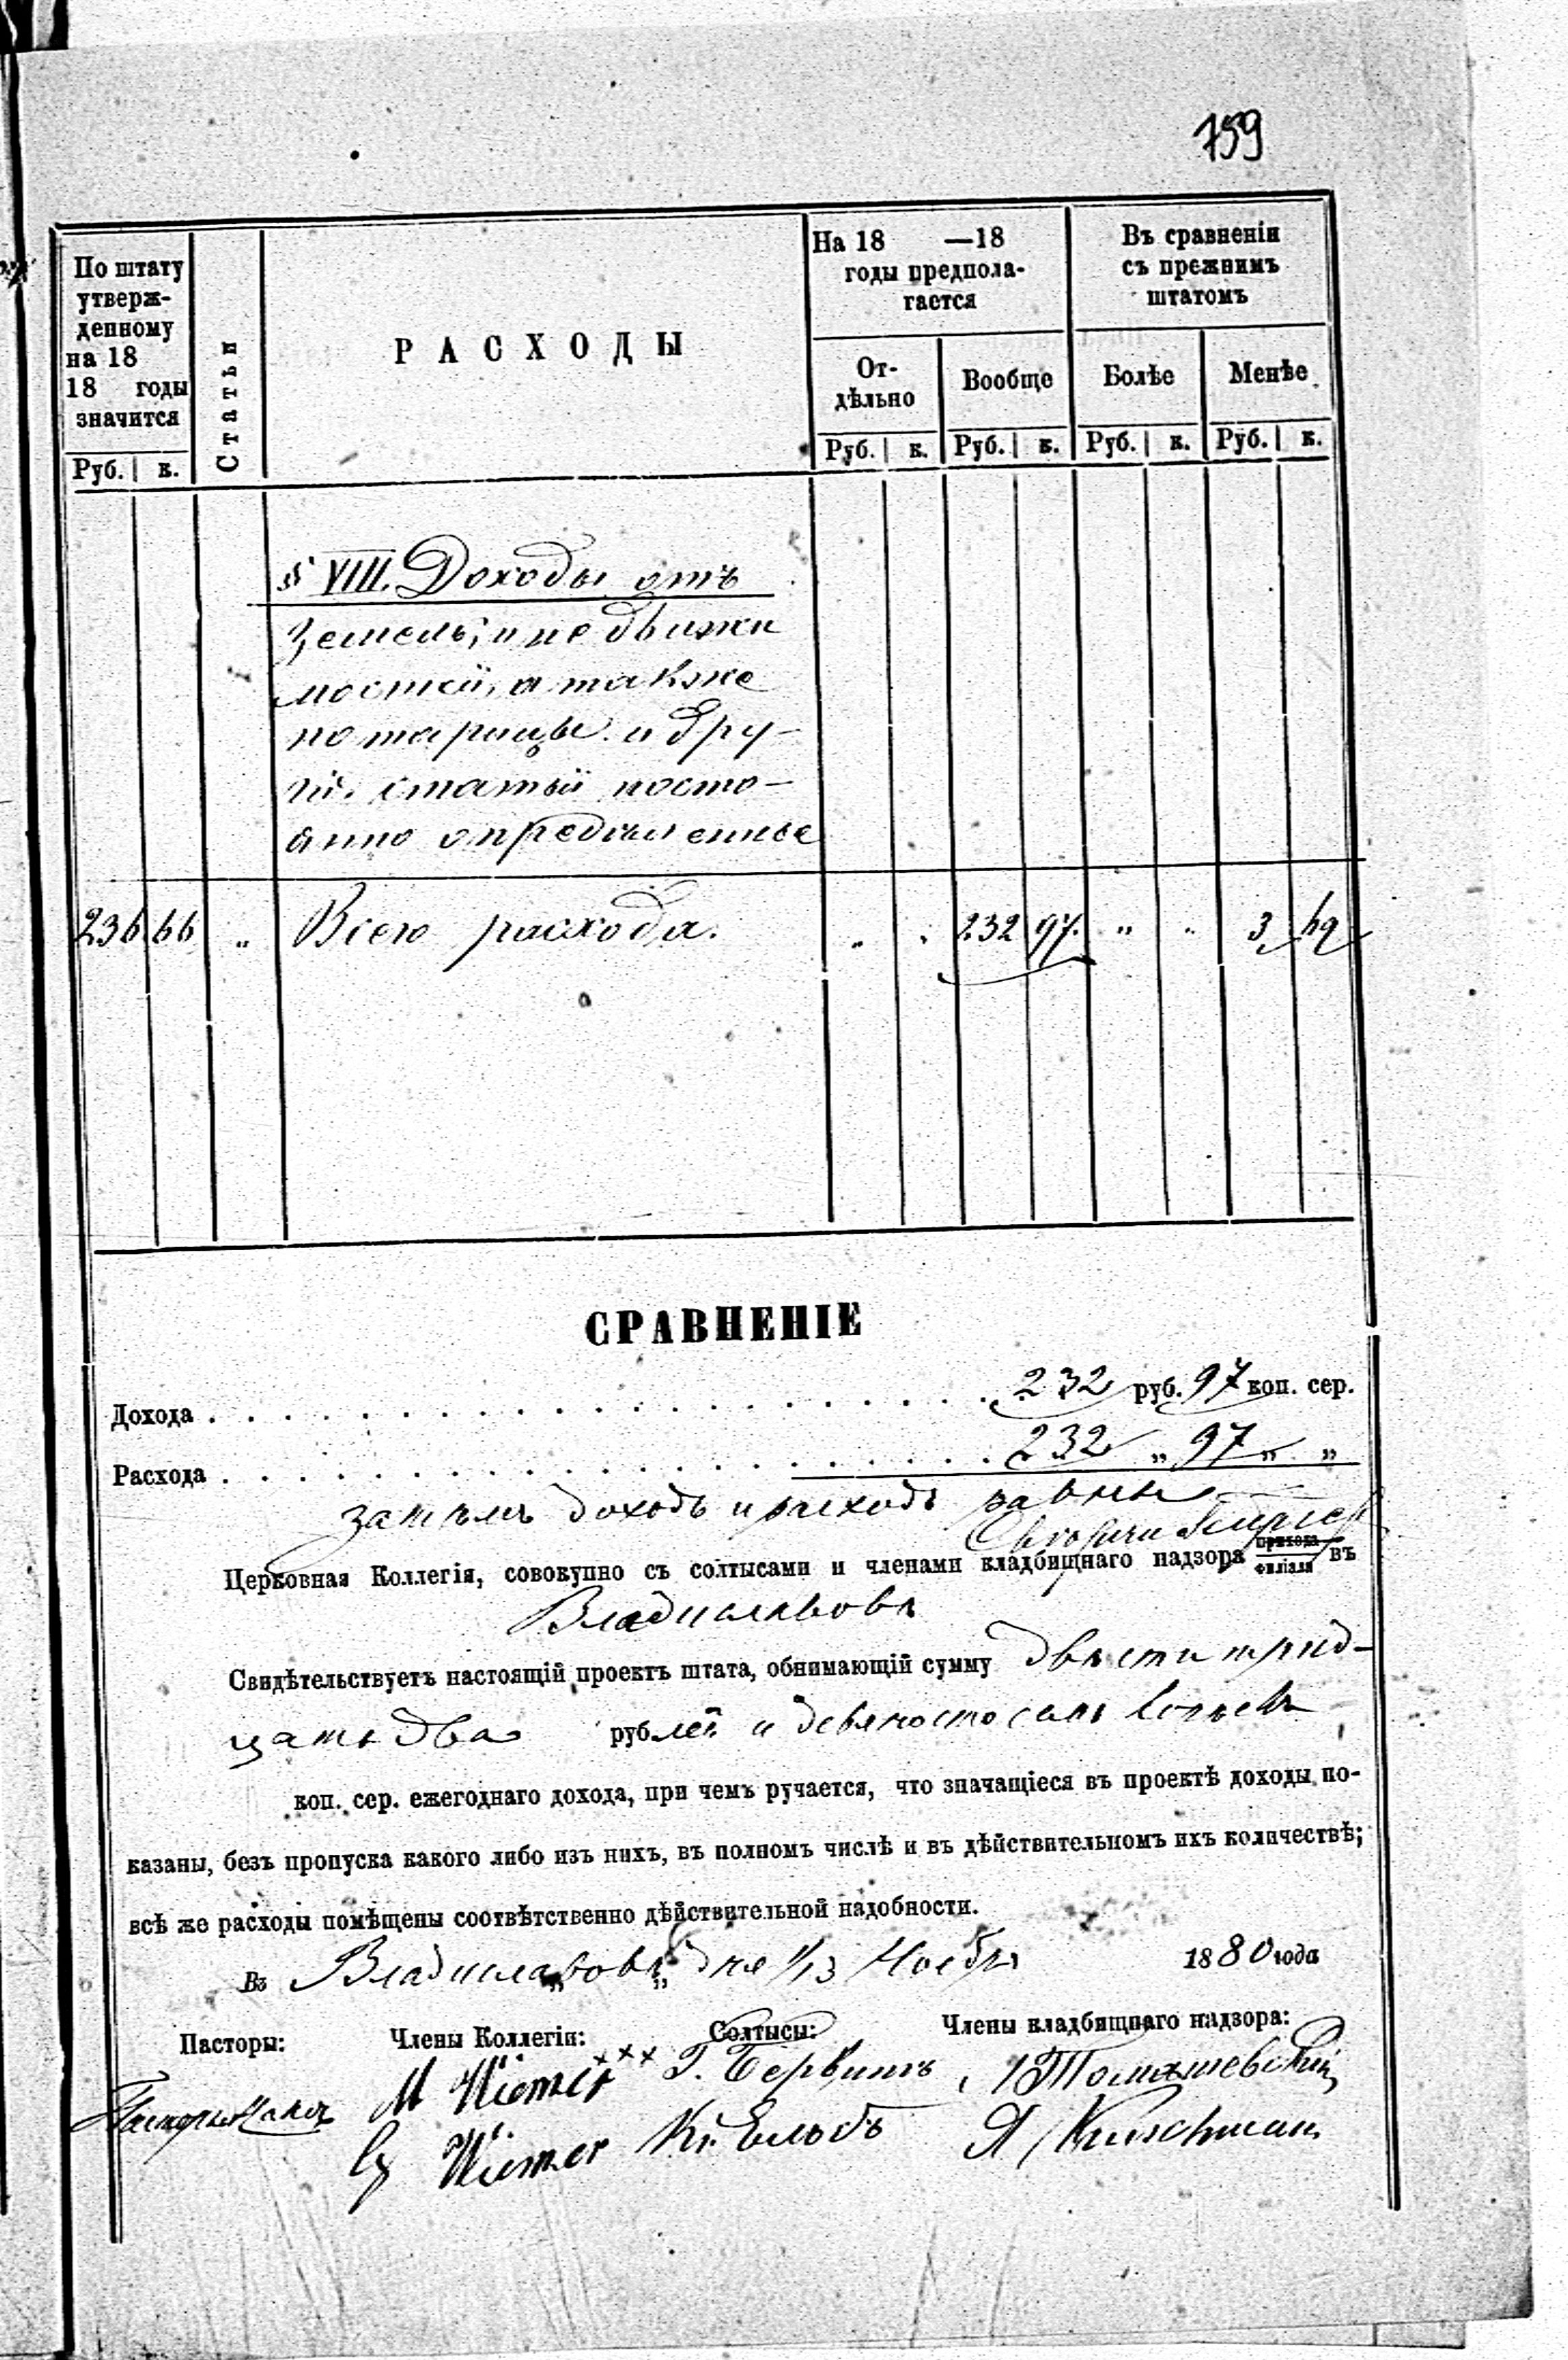 759
По штату
утверж-
денному
на 18
18 годы
значится
Руб. к.
Статьи
РАСХОДЫ
На 18 —18
годы предпола-
гается
От-
дѣльно
Руб. к.
Вообще
Руб. к.
Въ сравненіи
съ прежнимъ
штатомъ
Болѣе
Руб. к.
Менѣе
Руб. к.
§ VIII. Доходы отъ
земель, и недвижи
мостей, а также
по тарицы и дру-
гіе статьи посто-
янно определенные
236 66 „ Всего расхода. „ „ 232 97. „ „ 3 69
СРАВНЕНІЕ
Дохода . . . 232 руб. 97 коп. сер.
Расхода . . . 232 „ 97 „ „
затѣмъ доходъ и расходъ равны
Церковная Коллегія, совокупно съ солтысами и членами кладбищнаго надзора прихода филіала въ
Владиславовѣ
Свидѣтельствуетъ настоящій проектъ штата, обнимающій сумму двѣсти трид-
цать два рублей и девяносто семь копѣекъ
коп. сер. ежегоднаго дохода, при чемъ ручается, что значащіеся въ проектѣ доходы по-
казаны, безъ пропуска какого либо изъ нихъ, въ полномъ числѣ и въ дѣйствительномъ ихъ количествѣ;
всѣ же расходы помѣщены соотвѣтственно дѣйствительной надобности.
Въ Владиславовѣ дня 1/13 Ноября 1880 года
Пасторы: Члены Коллегіи: Солтысы: Члены кладбищнаго надзора:
M Wiemer xxx Г. Бервинъ Томашевскій
Wiemer Кр. Ельбъ A Kruschman